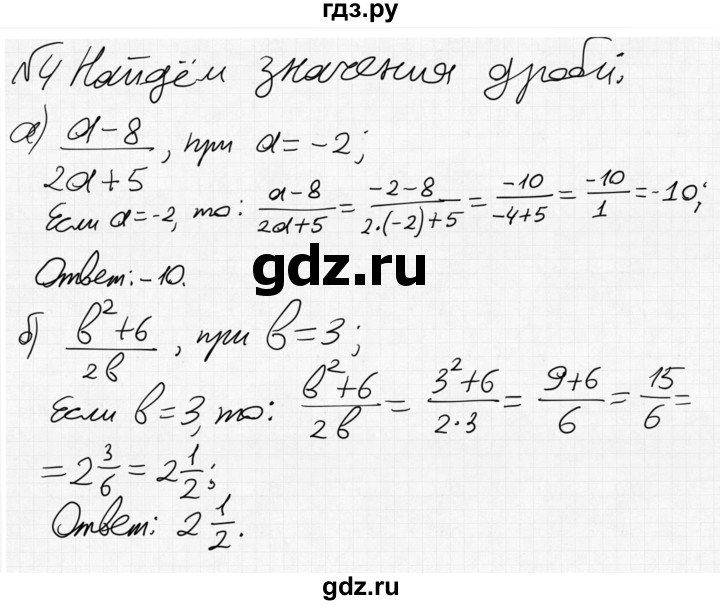 гдз.ру
№4 Найдём значения дроби.
а) a-8/2a+5, при a=-2;
Если a=-2, то: a-8/2a+5 = -2-8/2·(-2)+5 = -10/-4+5 = -10/1 = -10;
gdz.ru
Ответ: -10.
б) b²+6/2b, при b=3;
Если b=3, то: b²+6/2b = 3²+6/2·3 = 9+6/6 = 15/6 =
= 2 3/6 = 2 1/2;
Ответ: 2 1/2.
gdz.ru